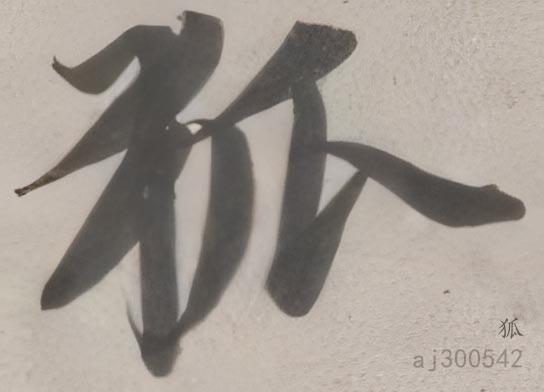 狐
狐
aj300542